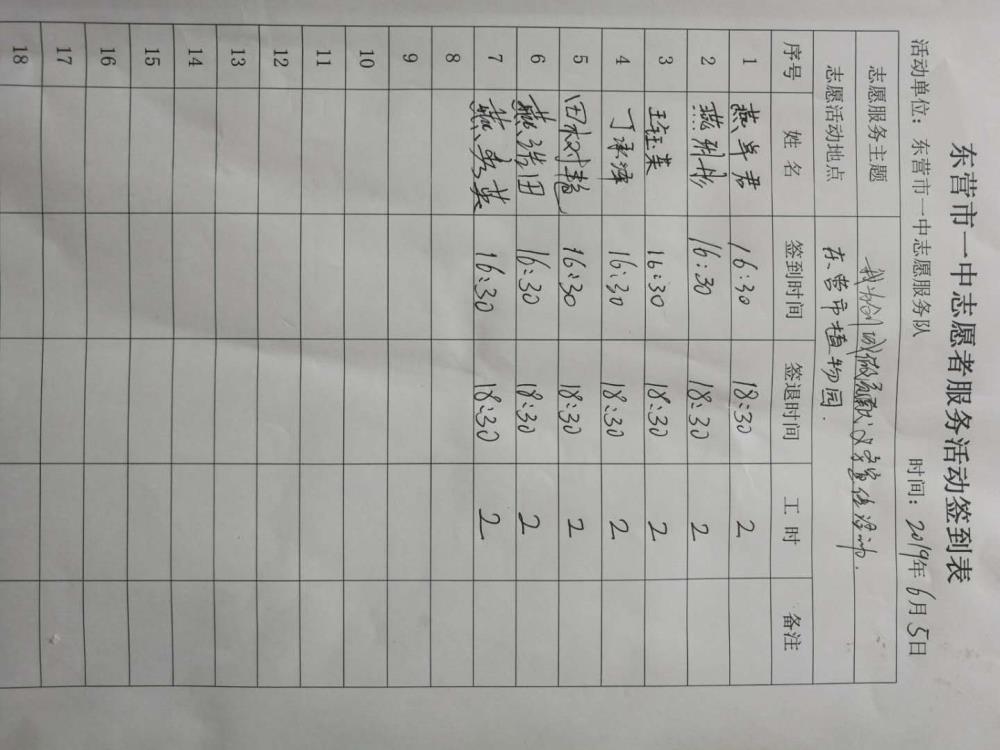 东营市一中志愿者服务活动签到表
活动单位：东营市一中志愿服务队 时间：2019年6月5日
志愿服务主题 我为创城做贡献
志愿活动地点 东营市植物园.
序号 姓名 签到时间 签退时间 工时 备注
1 燕 君 16:30 18:30 2
2 燕 彬 16:30 18:30 2
3 王钰荣 16:30 18:30 2
4 丁承泽 16:30 18:30 2
5 田树 16:30 18:30 2
6 燕浩田 16:30 18:30 2
7 燕秀英 16:30 18:30 2
8
9
10
11
12
13
14
15
16
17
18